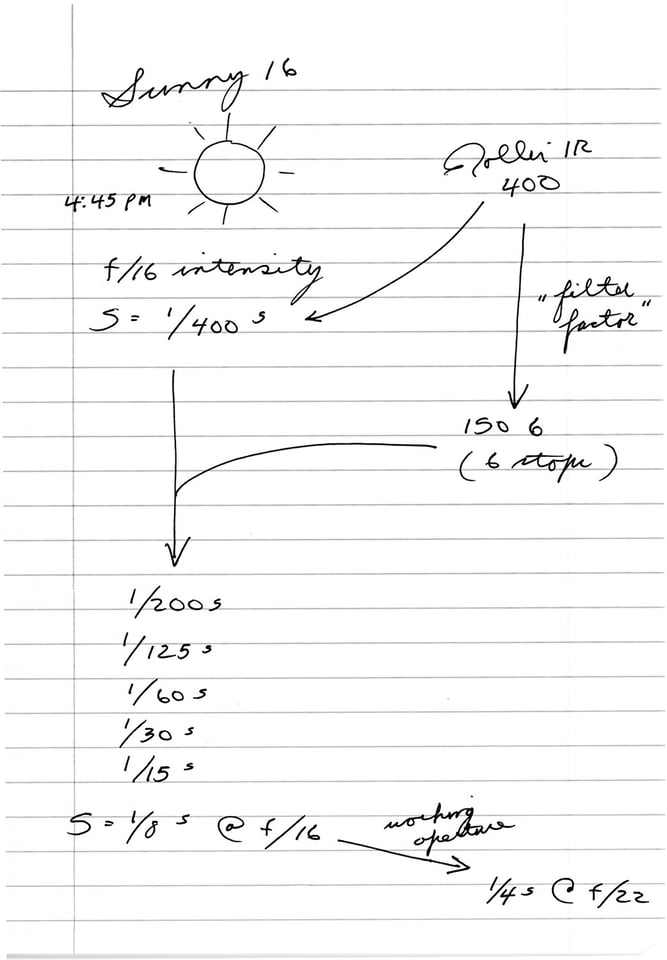 Sunny 16
Rollei IR
400
4:45 PM
f/16 intensity
S = 1/400 s
"filter
factor"
150 6
(6 stops)
1/200 s
1/125 s
1/60 s
1/30 s
1/15 s
S = 1/8 s @ f/16
working
aperture
1/4 s @ f/22